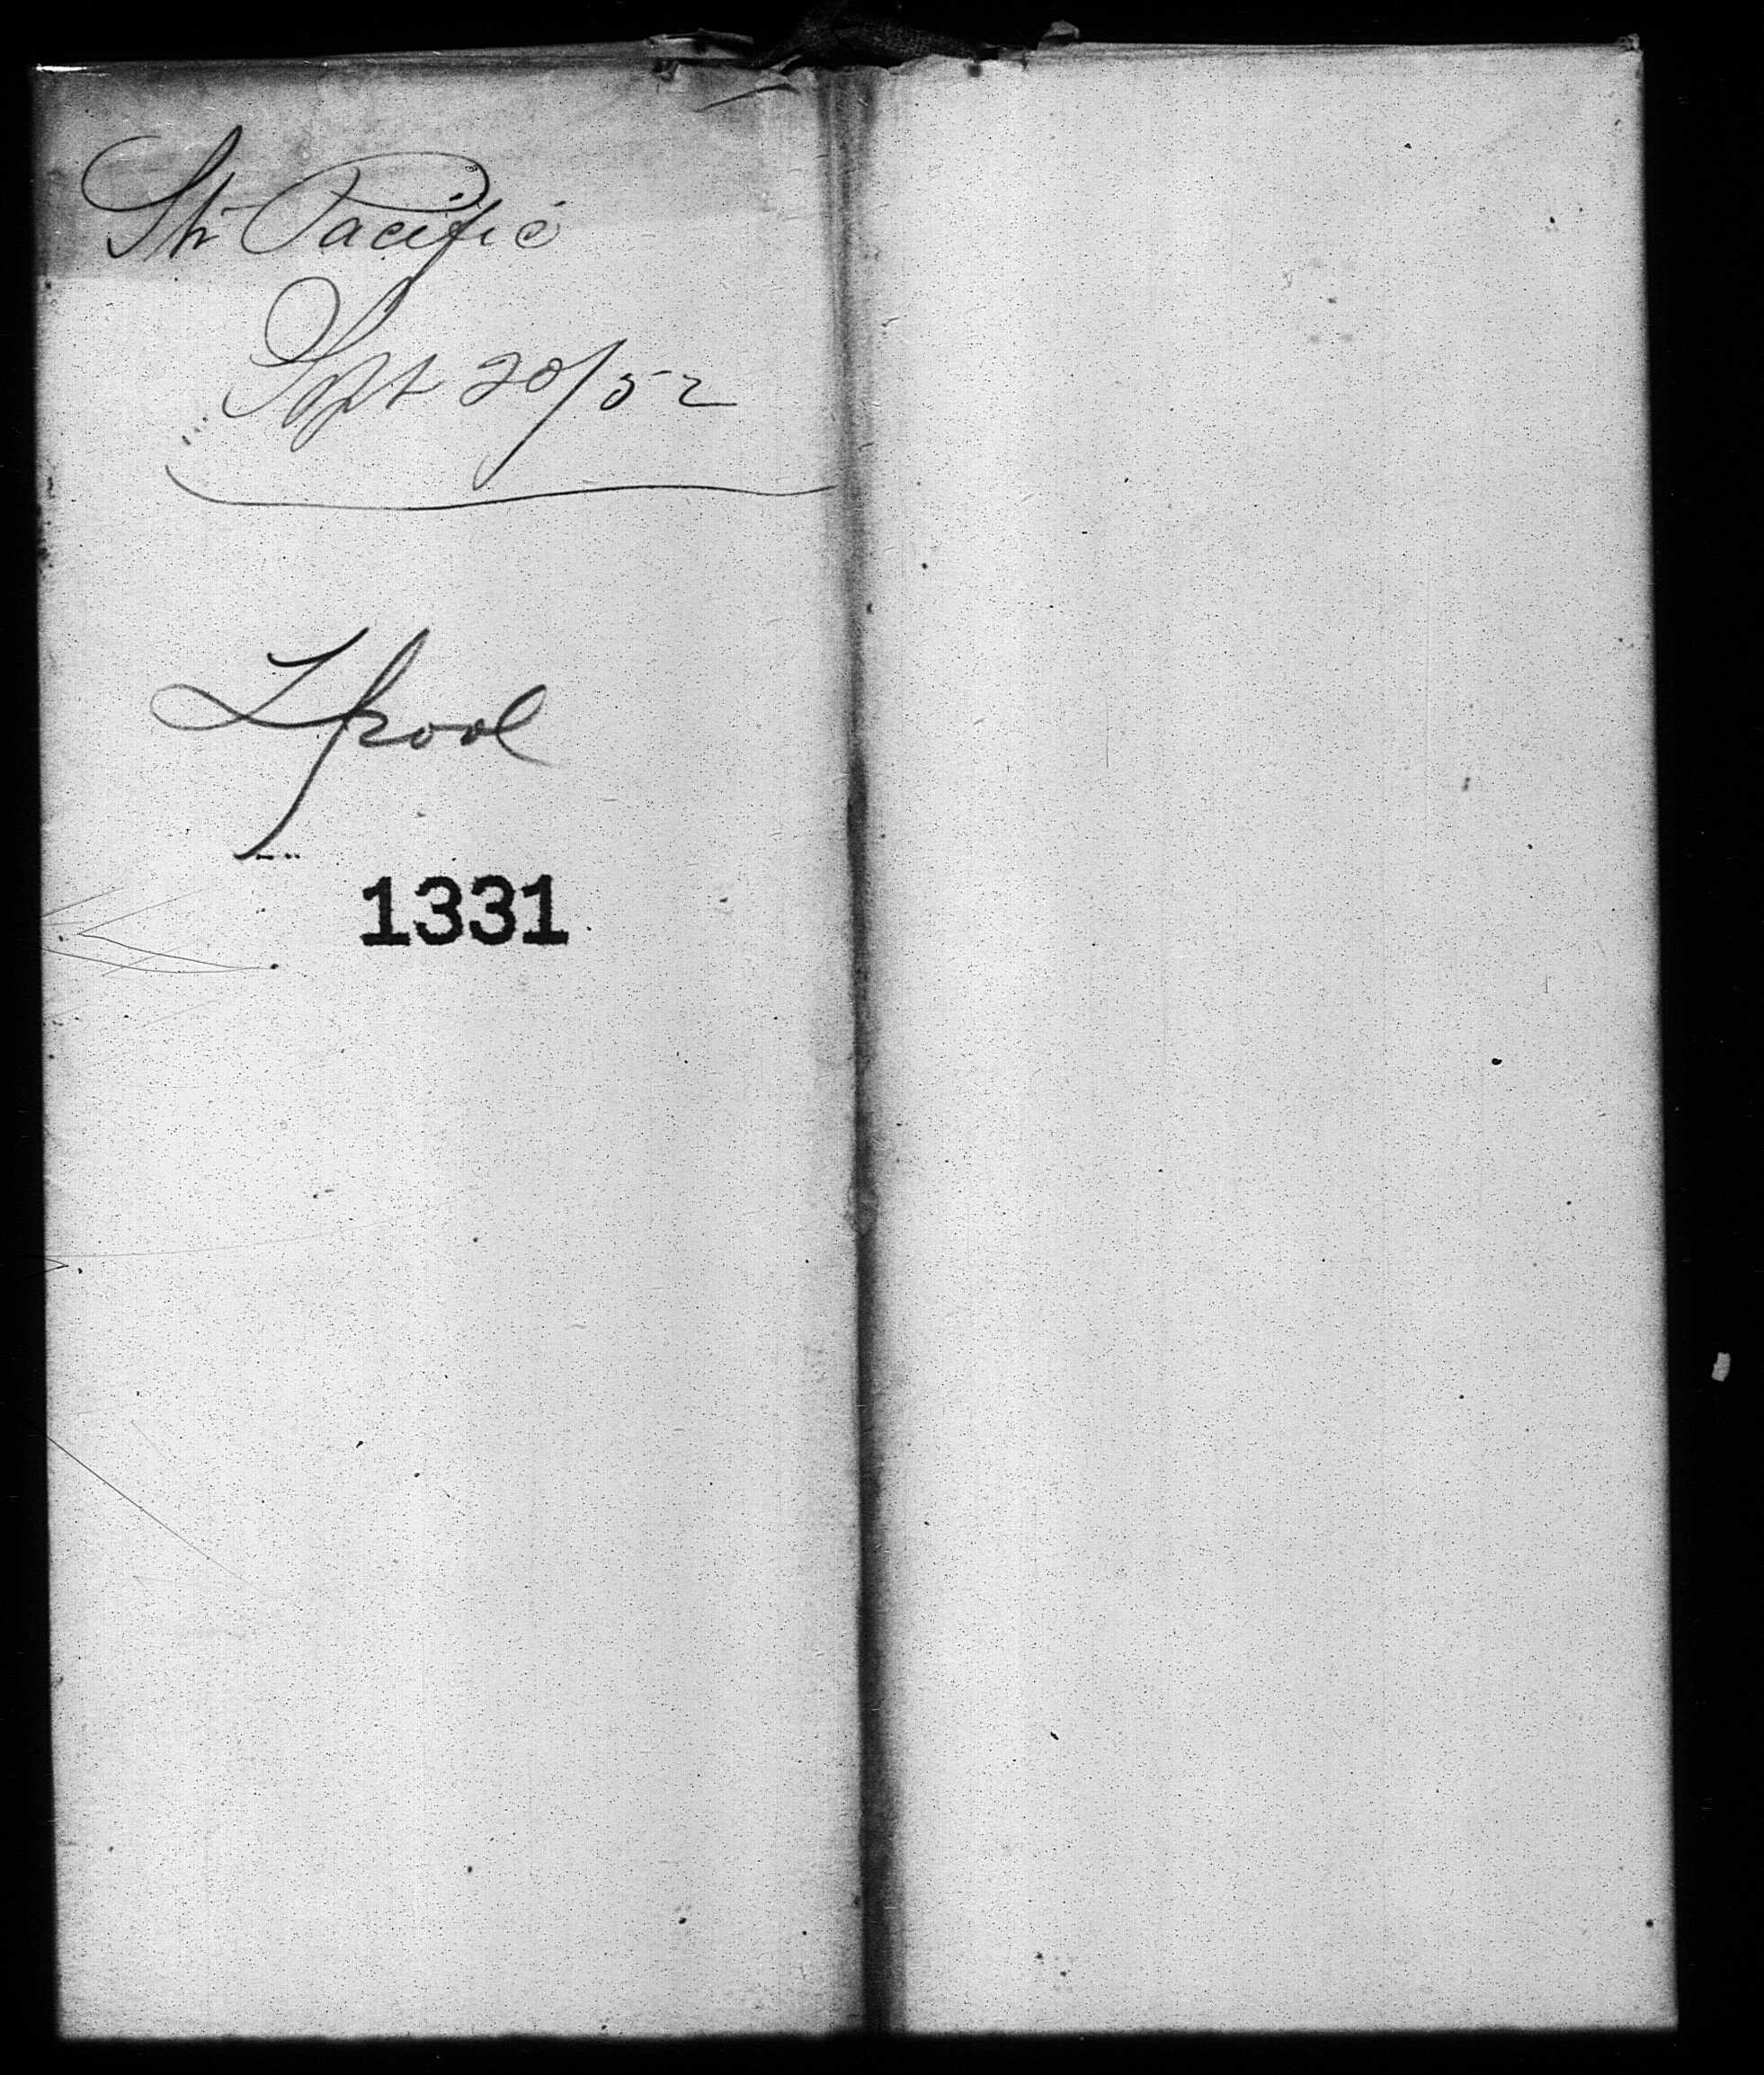 Str Pacific
Sept 20/52
Lpool
1331